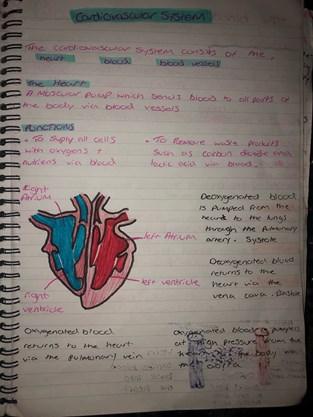 Cardiovascular System
The Cardiovascular System consists of the,
heart blood blood vessels
The Heart
A Muscular Pump which sends blood to all parts of
the body via blood vessels
Functions
• To Supply all cells
with oxygens +
nutriens via blood
• To Remove waste products
Such as carbon dioxide and
lactic acid via blood.
Right
Atrium
left Atrium
left ventricle
right
ventricle
Deoxygenated blood
is Pumped from the
heart to the lungs
through the Pulmonary
artery.
Deoxygenated blood
returns to the
heart via the
vena cava.
Oxygenated blood
returns to the heart
via the Pulmonary vein
Oxygenated blood is
at high pressure from the
the body
the aorta